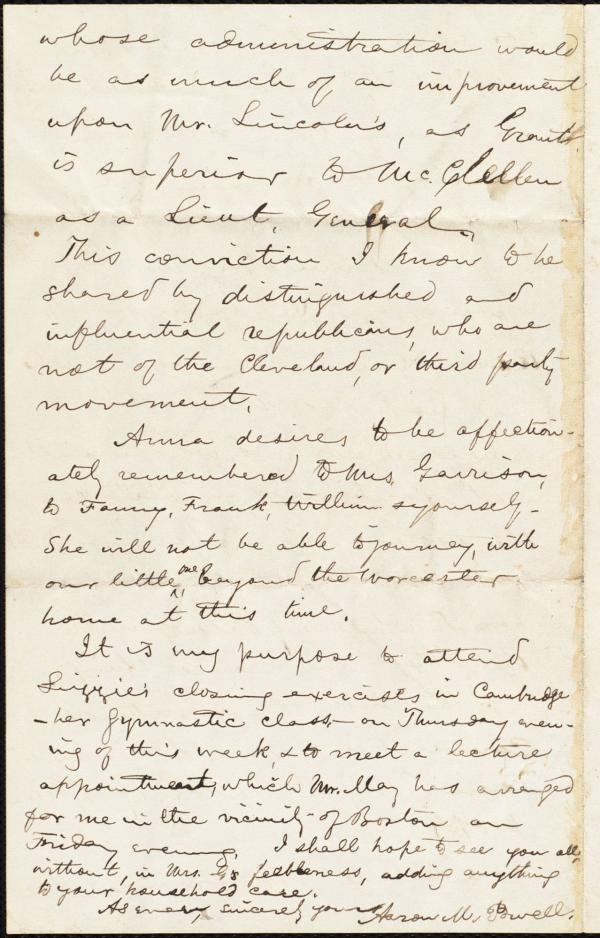 whose administration would
be as much of an improvement
upon Mr. Lincoln's, as Grant
is superior to Mc.Clellen
as a Lieut. General.
This conviction I know to be
shared by distinguished and
influential republicans, who are
not of the Cleveland, or third party
movement.
Anna desires to be affection-
ately remembered to Mrs. Garrison,
to Fanny, Frank, William & yourself-
She will not be able to journey, with
our little one beyond the Worcester
home at this time.
It is my purpose to attend
Lizzie's closing exercises in Cambridge
- her Gymnastic class - on Thursday even-
ing of this week, & to meet a lecture
appointment, which Mr. May has arranged
for me in the vicinity of Boston on
Friday evening. I shall hope to see you all,
without, in Mrs. G's feebleness, adding anything
to your household care.
As ever, sincerely yours Aaron M. Powell.